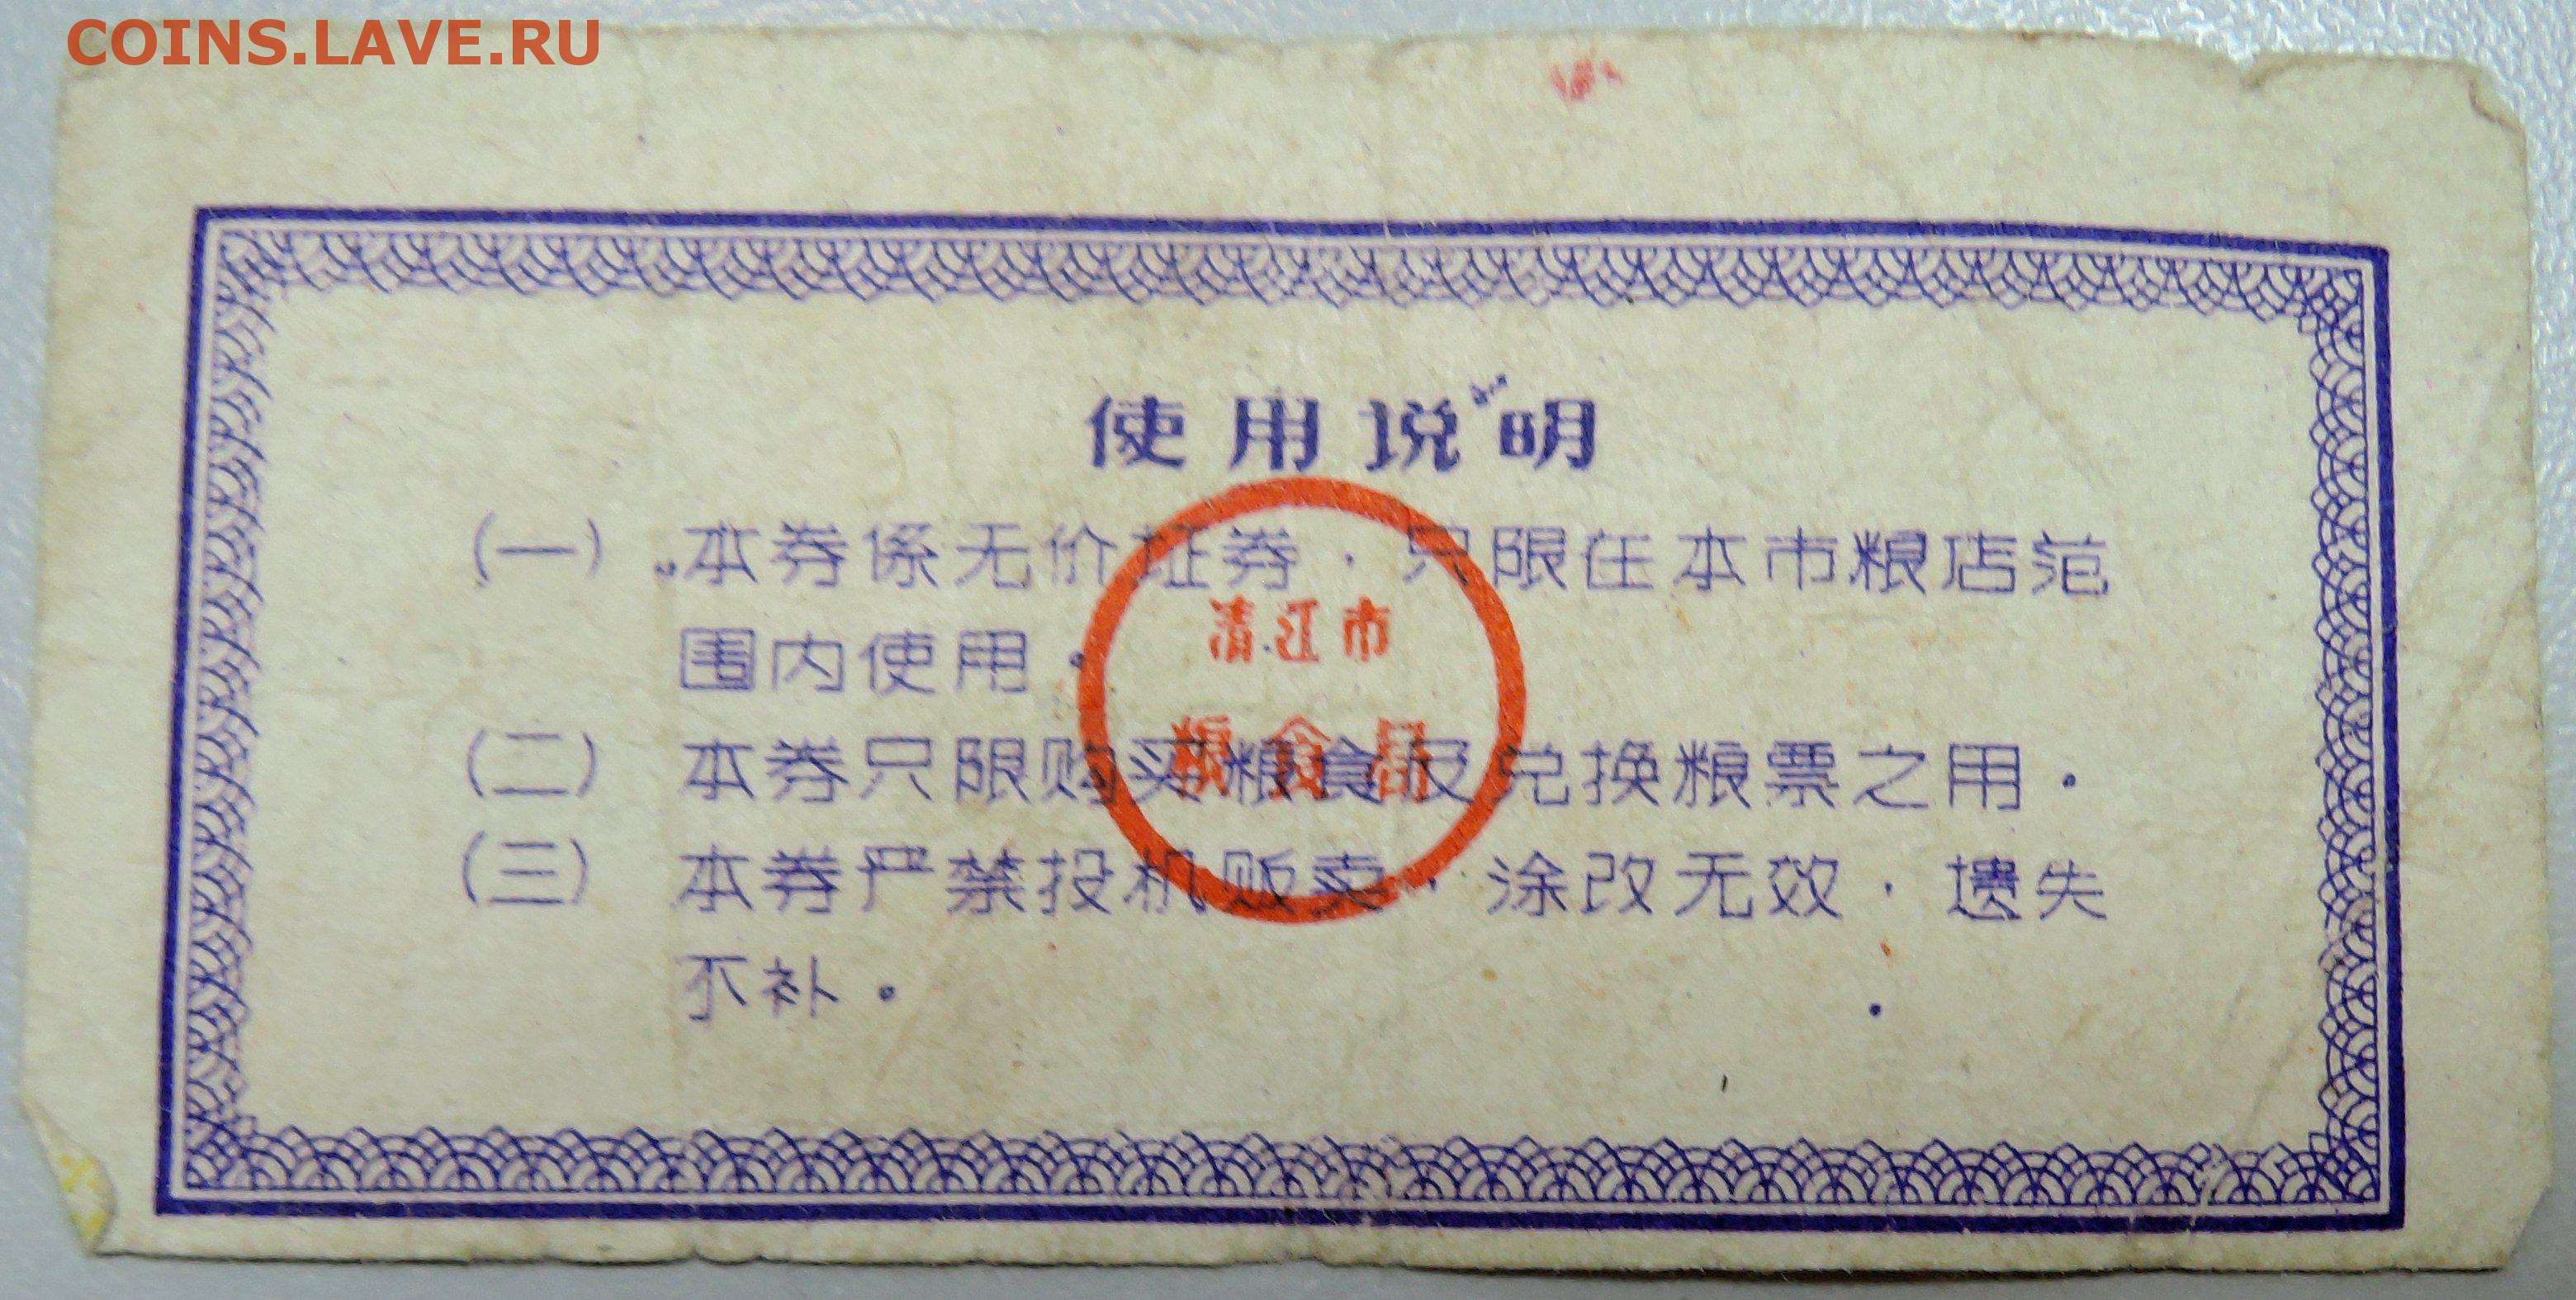 COINS.LAVE.RU
使用说明
(一) 本券係无价证券·只限在本市粮店范
围内使用·
清江市
粮食局
(二) 本券只限购买粮食及兑换粮票之用·
(三) 本券严禁投机贩卖·涂改无效·遗失
不补·